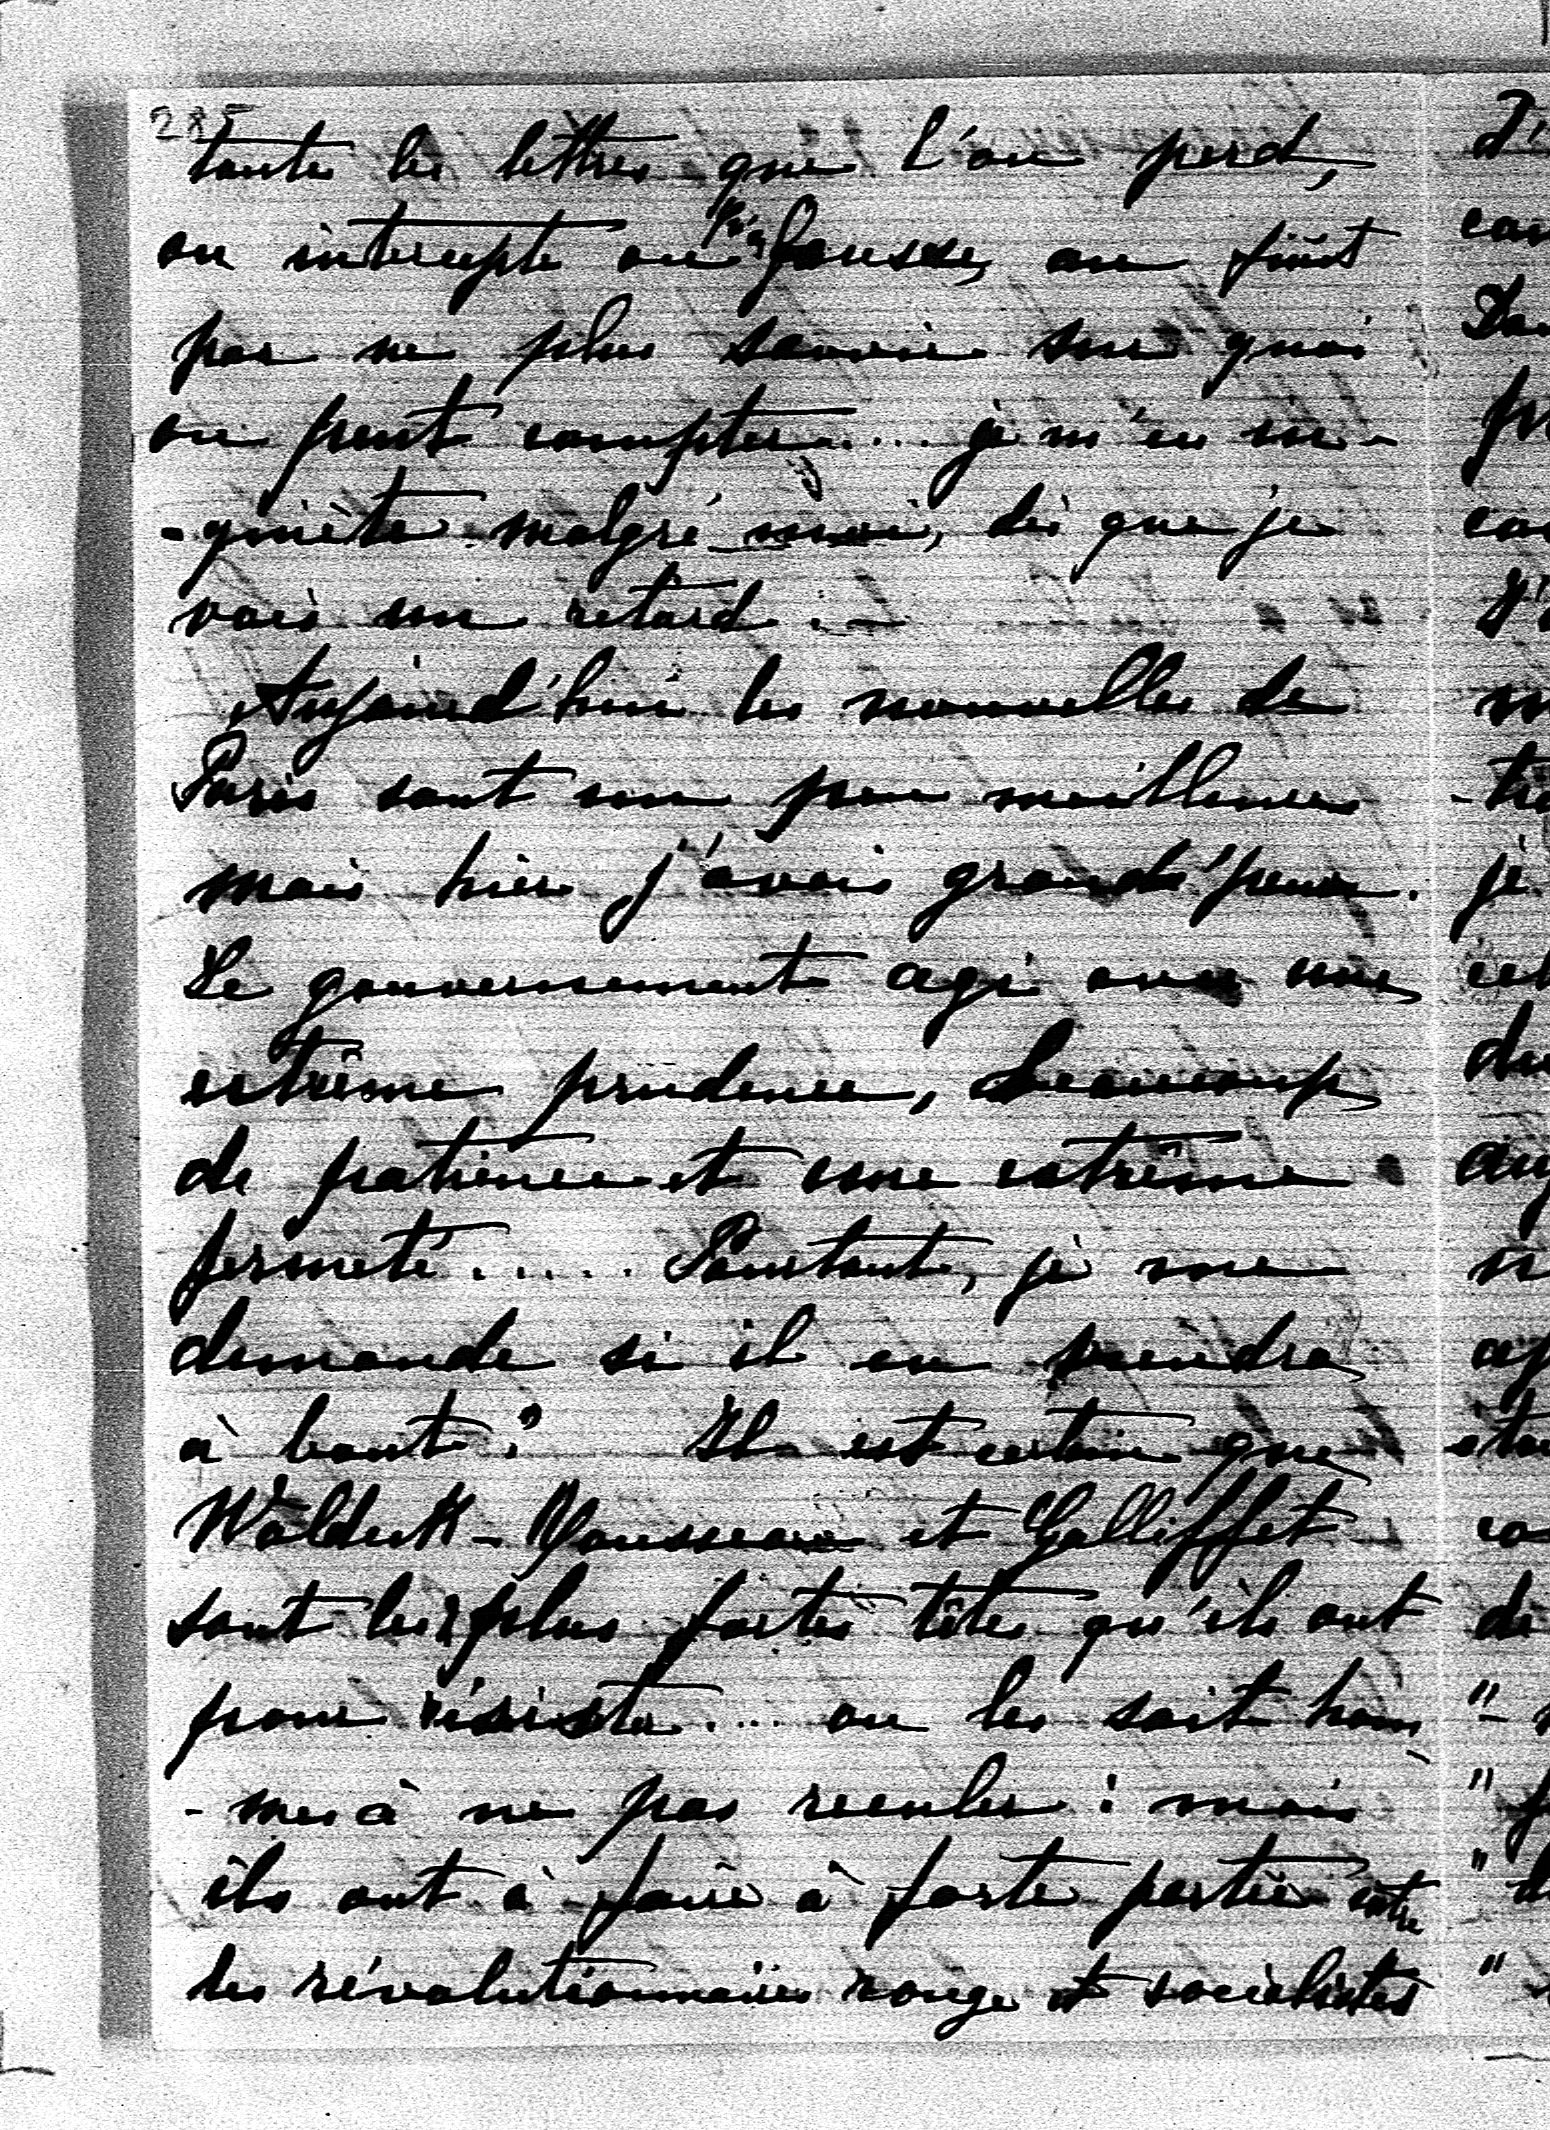 285
toutes les lettres que l'on perd,
ou intercepte ou fausse, on finit
par ne plus savoir sur quoi
on peut compter .... je m'en in-
-quiète malgré moi, dès que je
vois un retard . -
Aujourd'hui les nouvelles de
Paris sont un peu meilleures
mais hier j'avais grand'peur.
Le gouvernement agi avec une
extrême prudence, beaucoup
de patience et une extrême
fermeté ..... Pourtant, je me
demande si il en viendra
à bout ? Il est certain que
Waldeck-Rousseau et Galliffet
sont les plus fortes têtes qu'ils ont
pour résister .... on les sait hom
-mes à ne pas reculer : mais
ils ont à faire à forte partie entre
les révolutionnaires rouges et socialistes